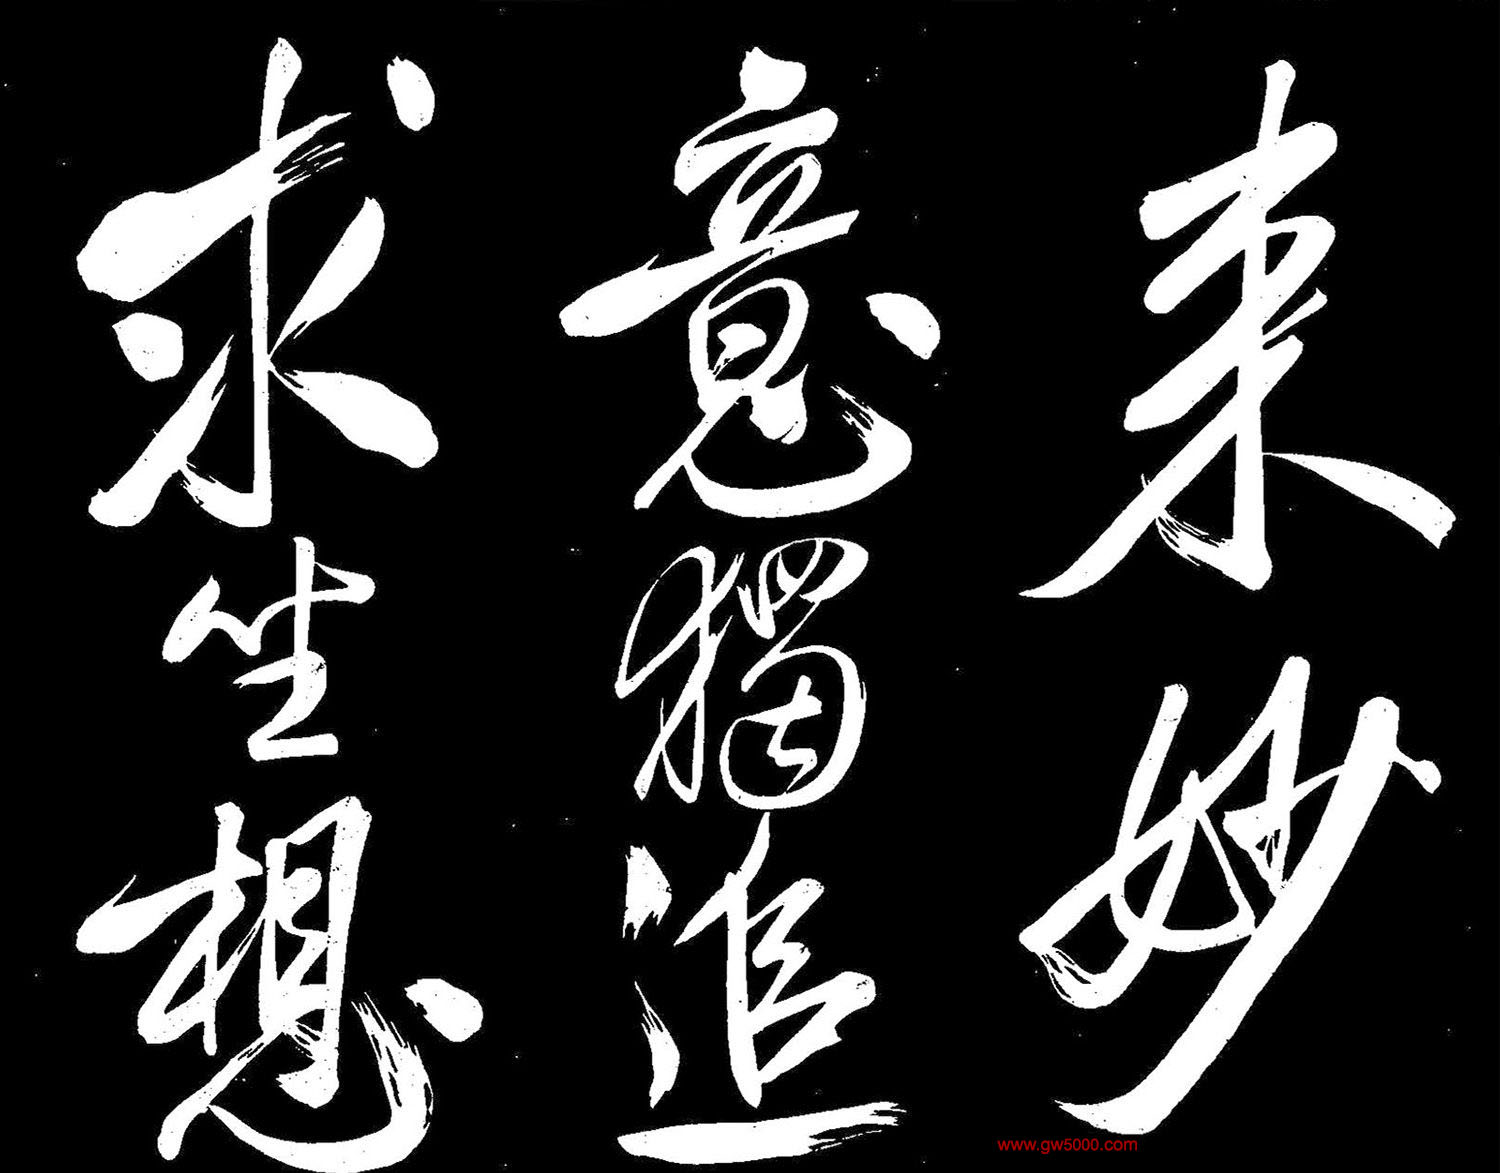 来妙
意獨追
求坐想
www.gw5000.com